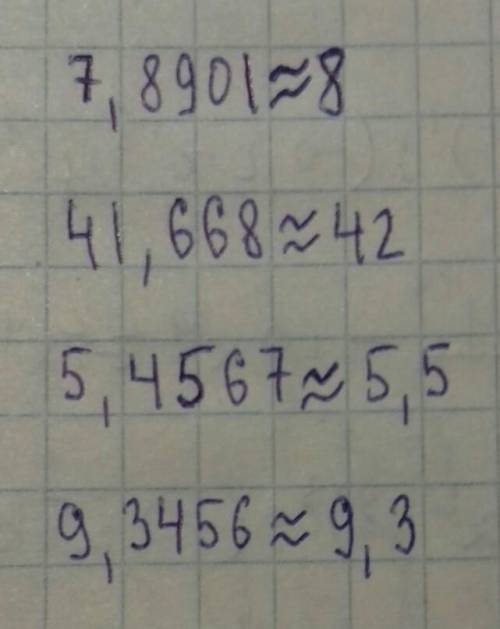 7,8901≈8
41,668≈42
5,4567≈5,5
9,3456≈9,3